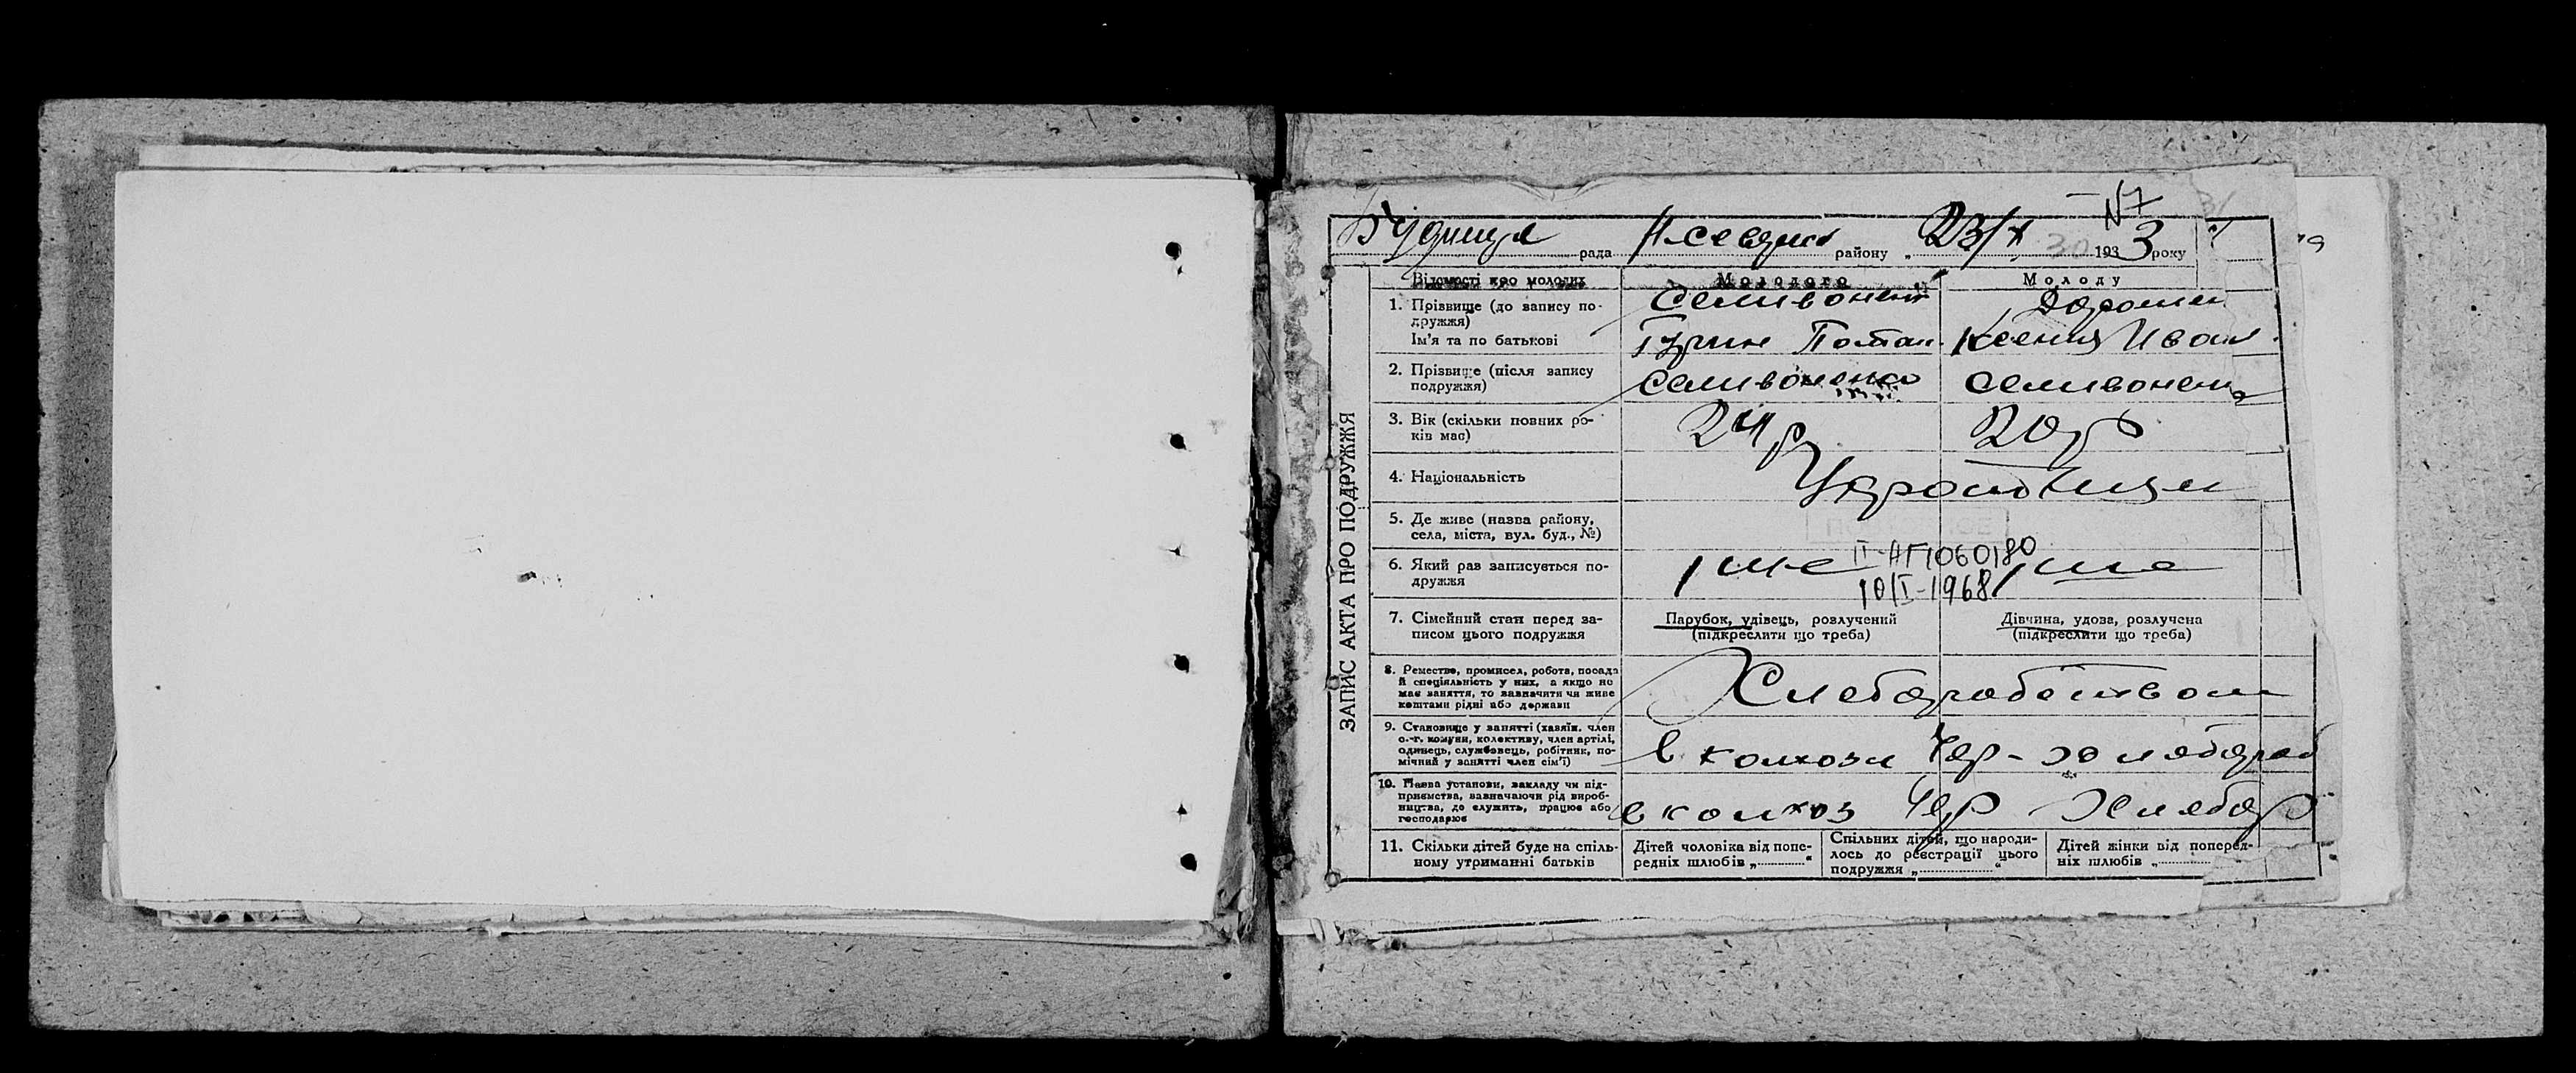 N7
рада района „ 23/X 1933 року
ЗАПИС АКТА ПРО ПОДРУЖЖЯ
Відомості про молодих
Молодого
Молоду
1. Прізвище (до запису по-
дружжя)
Ім'я та по батькові
Селивонен
Ксения Иван
2. Прізвище (після запису
подружжя)
Селивоненко
Селивоненко
3. Вік (скільки повних ро-
ків має)
24 р
20 р
4. Національність
5. Де живе (назва району,
села, міста, вул. буд., №)
6. Який рав записується по-
дружжя
1 ше
1 ше
II-АГ 1060180
10/I-1968
7. Сімейний стан перед за-
писом цього подружжя
Парубок, удівець, розлучений
(підкреслити що треба)
Дівчина, удова, розлучена
(підкреслити що треба)
8. Ремество, промисел, робота, посада
й спеціяльність у них, а якщо не
має заняття, то зазначити чи живе
коштами рідні або держави
Хлеборобством
9. Становище у занятті (хазяїн, член
с.-г. комуни, колективу, член артілі,
одинець, службовець, робітник, по-
мічний у занятті член сім'ї)
в колхози Чер-
10. Назва установи, закладу чи під-
приємства, вазначаючи рід вироб-
ництва, де служить, працює або
господарює
в колхоз Чер
11. Скільки дітей буде на спіль-
ному утриманні батьків
Дітей чоловіка від попе-
редніх шлюбів „ “
Спільних дітей, що народи-
лось до реєстрації цього
подружжя „ “
Дітей жінки від поперед-
ніх шлюбів „